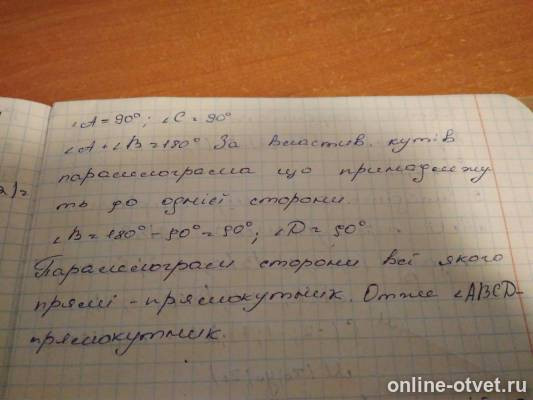 ∠A = 90°; ∠C = 90°
∠A + ∠B = 180° За властив. кутів
паралелограма що принадлежу
ть до однієї сторони.
∠B = 180° - 90° = 90°; ∠D = 90°
Паралелограм сторони всі якого
прямі - прямокутник. Отже ∠ABCD-
прямокутник.
online-otvet.ru